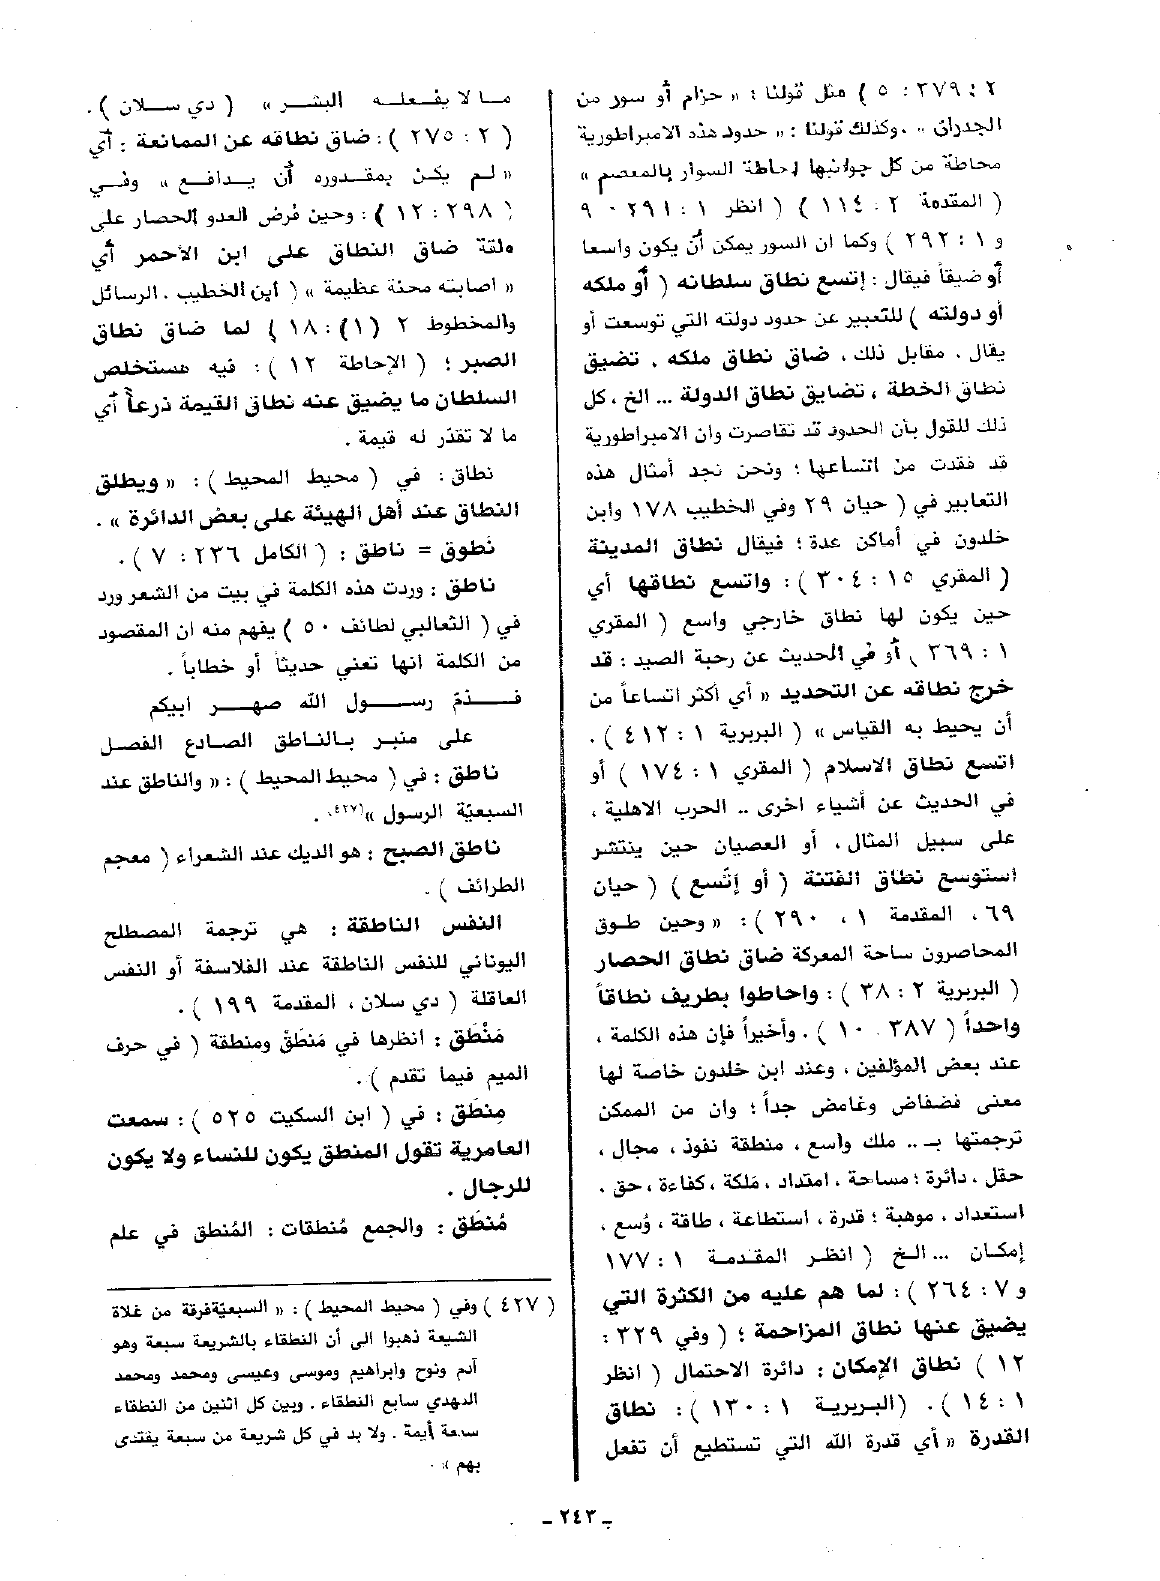 ٢ : ٣٧٩ : ٥ ) مثل قولنا : « حزام أو سور من
الجدران » . وكذلك قولنا : « حدود هذه الامبراطورية
محاطة من كل جوانبها إحاطة السوار بالمعصم »
( المقدمة ٢ : ١١٤ ) ( انظر ١ : ٢٩١ ٠ ٩
و ١ : ٢٩٢ ) وكما ان السور يمكن أن يكون واسعا
أو ضيقاً فيقال : إتسع نطاق سلطانه ( أو ملكه
أو دولته ) للتعبير عن حدود دولته التي توسعت أو
يقال ، مقابل ذلك ، ضاق نطاق ملكه ، تضيق
نطاق الخطة ، تضايق نطاق الدولة ... الخ ، كل
ذلك للقول بأن الحدود قد تقاصرت وان الامبراطورية
قد فقدت من اتساعها ؛ ونحن نجد أمثال هذه
التعابير في ( حيان ٢٩ وفي الخطيب ١٧٨ وابن
خلدون في أماكن عدة ؛ فيقال نطاق المدينة
( المقري ١٥ : ٣٠٤ ) : واتسع نطاقها أي
حين يكون لها نطاق خارجي واسع ( المقري
١ : ٣٦٩ ) أو في الحديث عن رحبة الصيد : قد
خرج نطاقه عن التحديد « أي أكثر اتساعاً من
أن يحيط به القياس » ( البربرية ١ : ٤١٢ ) .
اتسع نطاق الاسلام ( المقري ١ : ١٧٤ ) أو
في الحديث عن أشياء اخرى .. الحرب الاهلية ،
على سبيل المثال ، أو العصيان حين ينتشر
استوسع نطاق الفتنة ( أو إتّسع ) ( حيان
٦٩ ، المقدمة ١ ، ٢٩٠ ) : « وحين طوق
المحاصرون ساحة المعركة ضاق نطاق الحصار
( البربرية ٢ : ٣٨ ) : واحاطوا بطريف نطاقاً
واحداً ( ٣٨٧ . ١٠ ) . وأخيراً فإن هذه الكلمة ،
عند بعض المؤلفين ، وعند ابن خلدون خاصة لها
معنى فضفاض وغامض جداً ؛ وان من الممكن
ترجمتها بـ .. ملك واسع ، منطقة نفوذ ، مجال ،
حقل ، دائرة ؛ مساحة ، امتداد ، مَلكة ، كفاءة ، حق .
استعداد ، موهبة ؛ قدرة ، استطاعة ، طاقة ، وُسع ،
إمكان ... الخ ( انظر المقدمة ١ : ١٧٧
و ٧ : ٢٦٤ ) : لما هم عليه من الكثرة التي
يضيق عنها نطاق المزاحمة ؛ ( وفي ٣٢٩ :
١٢ ) نطاق الإمكان : دائرة الاحتمال ( انظر
١ : ١٤ ) . ( البربرية ١ : ١٣٠ ) : نطاق
القدرة « أي قدرة الله التي تستطيع أن تفعل
ما لا يفعله البشر » ( دي سلان ) .
( ٢ : ٢٧٥ ) : ضاق نطاقه عن الممانعة : أي
« لم يكن بمقدوره أن يدافع » وفي
( ٢٩٨ : ١٢ ) : وحين فرض العدو الحصار على
ملقة ضاق النطاق على ابن الأحمر أي
« اصابته محنة عظيمة » ( أبن الخطيب . الرسائل
والمخطوط ٢ (١) : ١٨ ) لما ضاق نطاق
الصبر ؛ ( الإحاطة ١٢ ) : فيه مستخلص
السلطان ما يضيق عنه نطاق القيمة ذرعاً أي
ما لا تقدّر له قيمة .
نطاق : في ( محيط المحيط ) : « ويطلق
النطاق عند أهل الهيئة على بعض الدائرة » .
نَطوق = ناطق : ( الكامل ٢٣٦ : ٧ ) .
ناطق : وردت هذه الكلمة في بيت من الشعر ورد
في ( الثعالبي لطائف ٥٠ ) يفهم منه ان المقصود
من الكلمة انها تعني حديثاً أو خطاباً .
فـذمّ رسـول الله صهـر أبيكم
على منبر بالناطق الصادع الفصل
ناطق : في ( محيط المحيط ) : « والناطق عند
السبعيّة الرسول »(٤٢٧) .
ناطق الصبح : هو الديك عند الشعراء ( معجم
الطرائف ) .
النفس الناطقة : هي ترجمة المصطلح
اليوناني للنفس الناطقة عند الفلاسفة أو النفس
العاقلة ( دي سلان ، المقدمة ١٩٩ ) .
مَنْطَق : انظرها في مَنطَق ومنطقة ( في حرف
الميم فيما تقدم ) .
مِنطَق : في ( ابن السكيت ٥٢٥ ) : سمعت
العامرية تقول المنطق يكون للنساء ولا يكون
للرجال .
مُنطَق : والجمع مُنطقات : المُنطق في علم
( ٤٢٧ ) وفي ( محيط المحيط ) : « السبعيّة فرقة من غلاة
الشيعة ذهبوا الى أن النطقاء بالشريعة سبعة وهو
آدم ونوح وابراهيم وموسى وعيسى ومحمد ومحمد
المهدي سابع النطقاء . وبين كل اثنين من النطقاء
سبعة أيمة . ولا بد في كل شريعة من سبعة يقتدى
بهم » .
ـ ٢٤٣ ـ